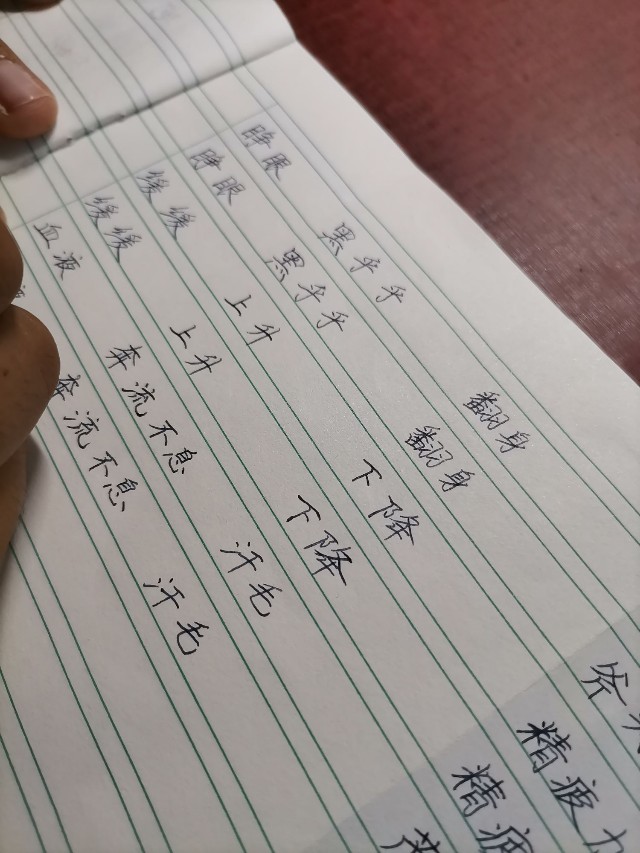 睁眼 黑乎乎 翻身
睁眼 黑乎乎 翻身
缓缓 上升 下降
缓缓 上升 下降
血液 奔流不息 汗毛
奔流不息 汗毛
斧
精疲力
精疲